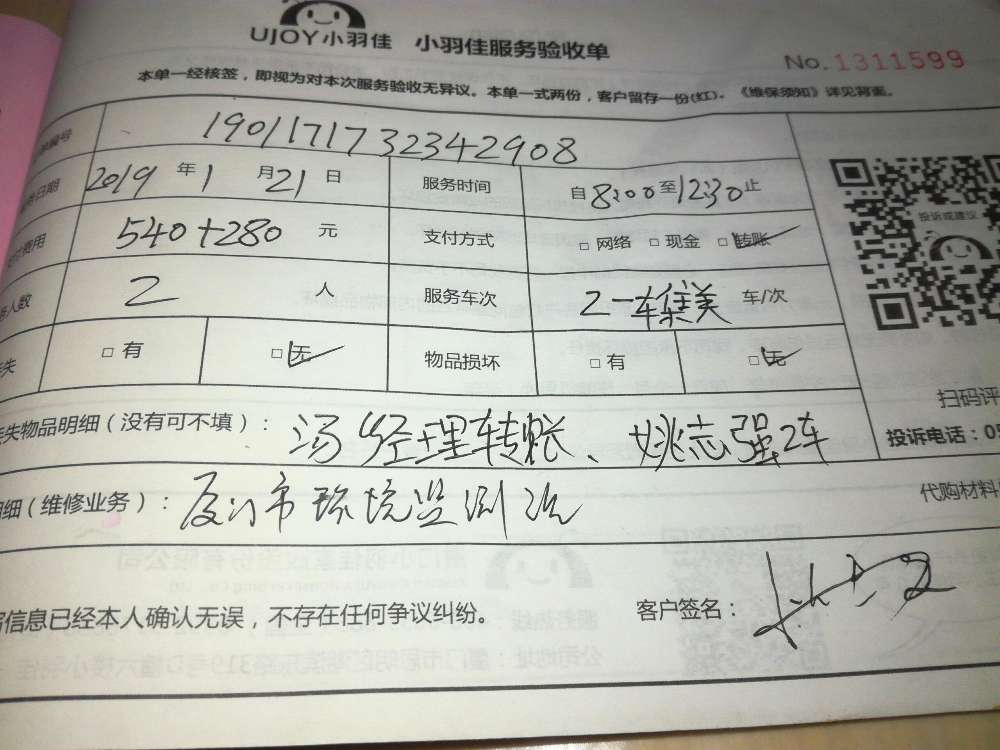 UJOY小羽佳 小羽佳服务验收单
No. 1311599
本单一经核签，即视为对本次服务验收无异议。本单一式两份，客户留存一份(红)。《维保须知》详见背面。
编号 1901171732342908
日期 2019 年 1 月 21 日 服务时间 自 8:00 至 12:30 止
费用 540+280 元 支付方式 □ 网络 □ 现金 □ 转账
投诉或建议
人数 2 人 服务车次 2一车集美 车/次
失 □ 有 □ 无 物品损坏 □ 有 □ 无
扫码评
失物品明细（没有可不填）： 汤经理转账、姚志强2车
投诉电话：05
细（维修业务）： 厦门市环境监测
代购材料
信息已经本人确认无误，不存在任何争议纠纷。 客户签名：